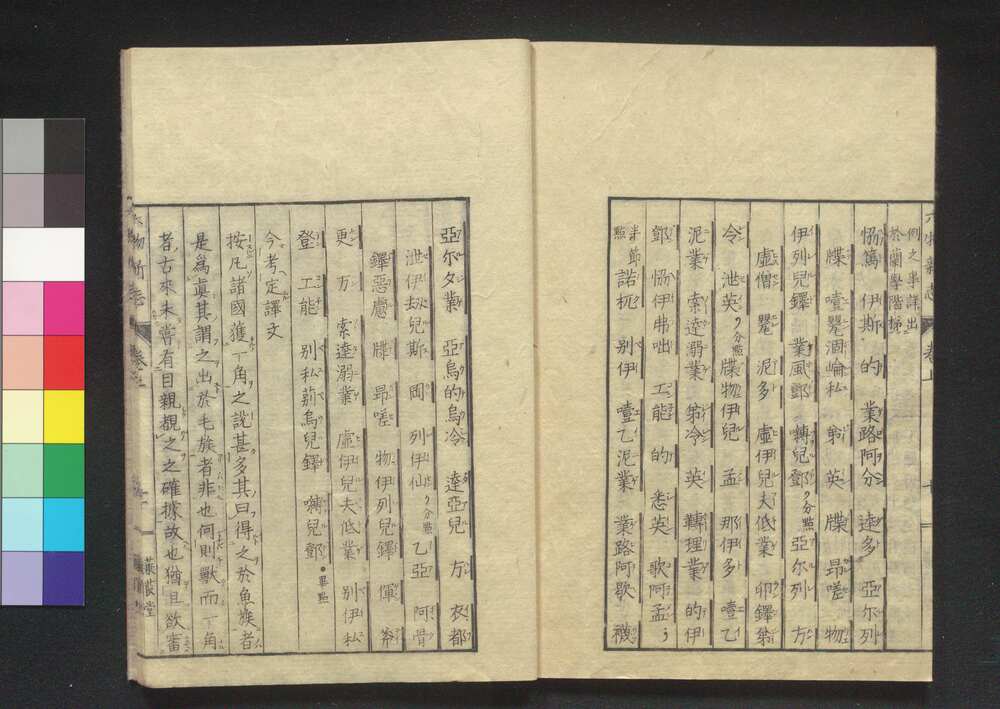 例之事詳出
於蘭學階梯
協篤 伊斯 的 業路阿分 達多 亞尔列
牒 噎瞿涸崘私 第 英 牒 昂嗟 物
伊列兒鐸 業風鄧 轉兒鄧 分點 亞尔列 方
虚僧 瞿 泥多 虚伊兒夫低業 卯鐸第
令 泄英 分點 牒物伊兒 孟 那伊多 噎乙
泥業 索達溺業 第冷 英 轉理業 的伊
鄧 協伊弗咄 工能 的 悉英 歌阿孟
半節
點
諾扼 別伊 噎乙泥業 業路阿歇 襪
亞尔夕業 亞烏的烏冷 達亞兒 方 衣都
泄伊 兒斯 岡 列伊仙 分點 乙亞 阿骨
鐸惡慮 牒 昂嗟 物伊列兒鐸 倕
更 万 索達溺業 虚伊兒夫低業 別伊私
登 工能 別私 烏兒鐸 囀兒鄧 畢點
今考定譯文
按凡諸國獲一角之説甚多其曰得之於魚族者
是爲眞其謂之出於毛族者非也何則獸而一角
者古來未嘗有目親覩之之確據故也猶且欲審
六物新志 卷上